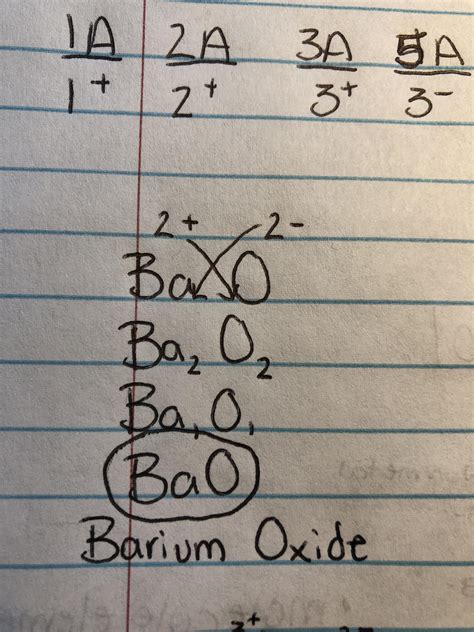 1A 2A 3A 5A
1+ 2+ 3+ 3-
2+ 2-
Ba O
Ba₂ O₂
Ba₁ O₁
BaO
Barium Oxide